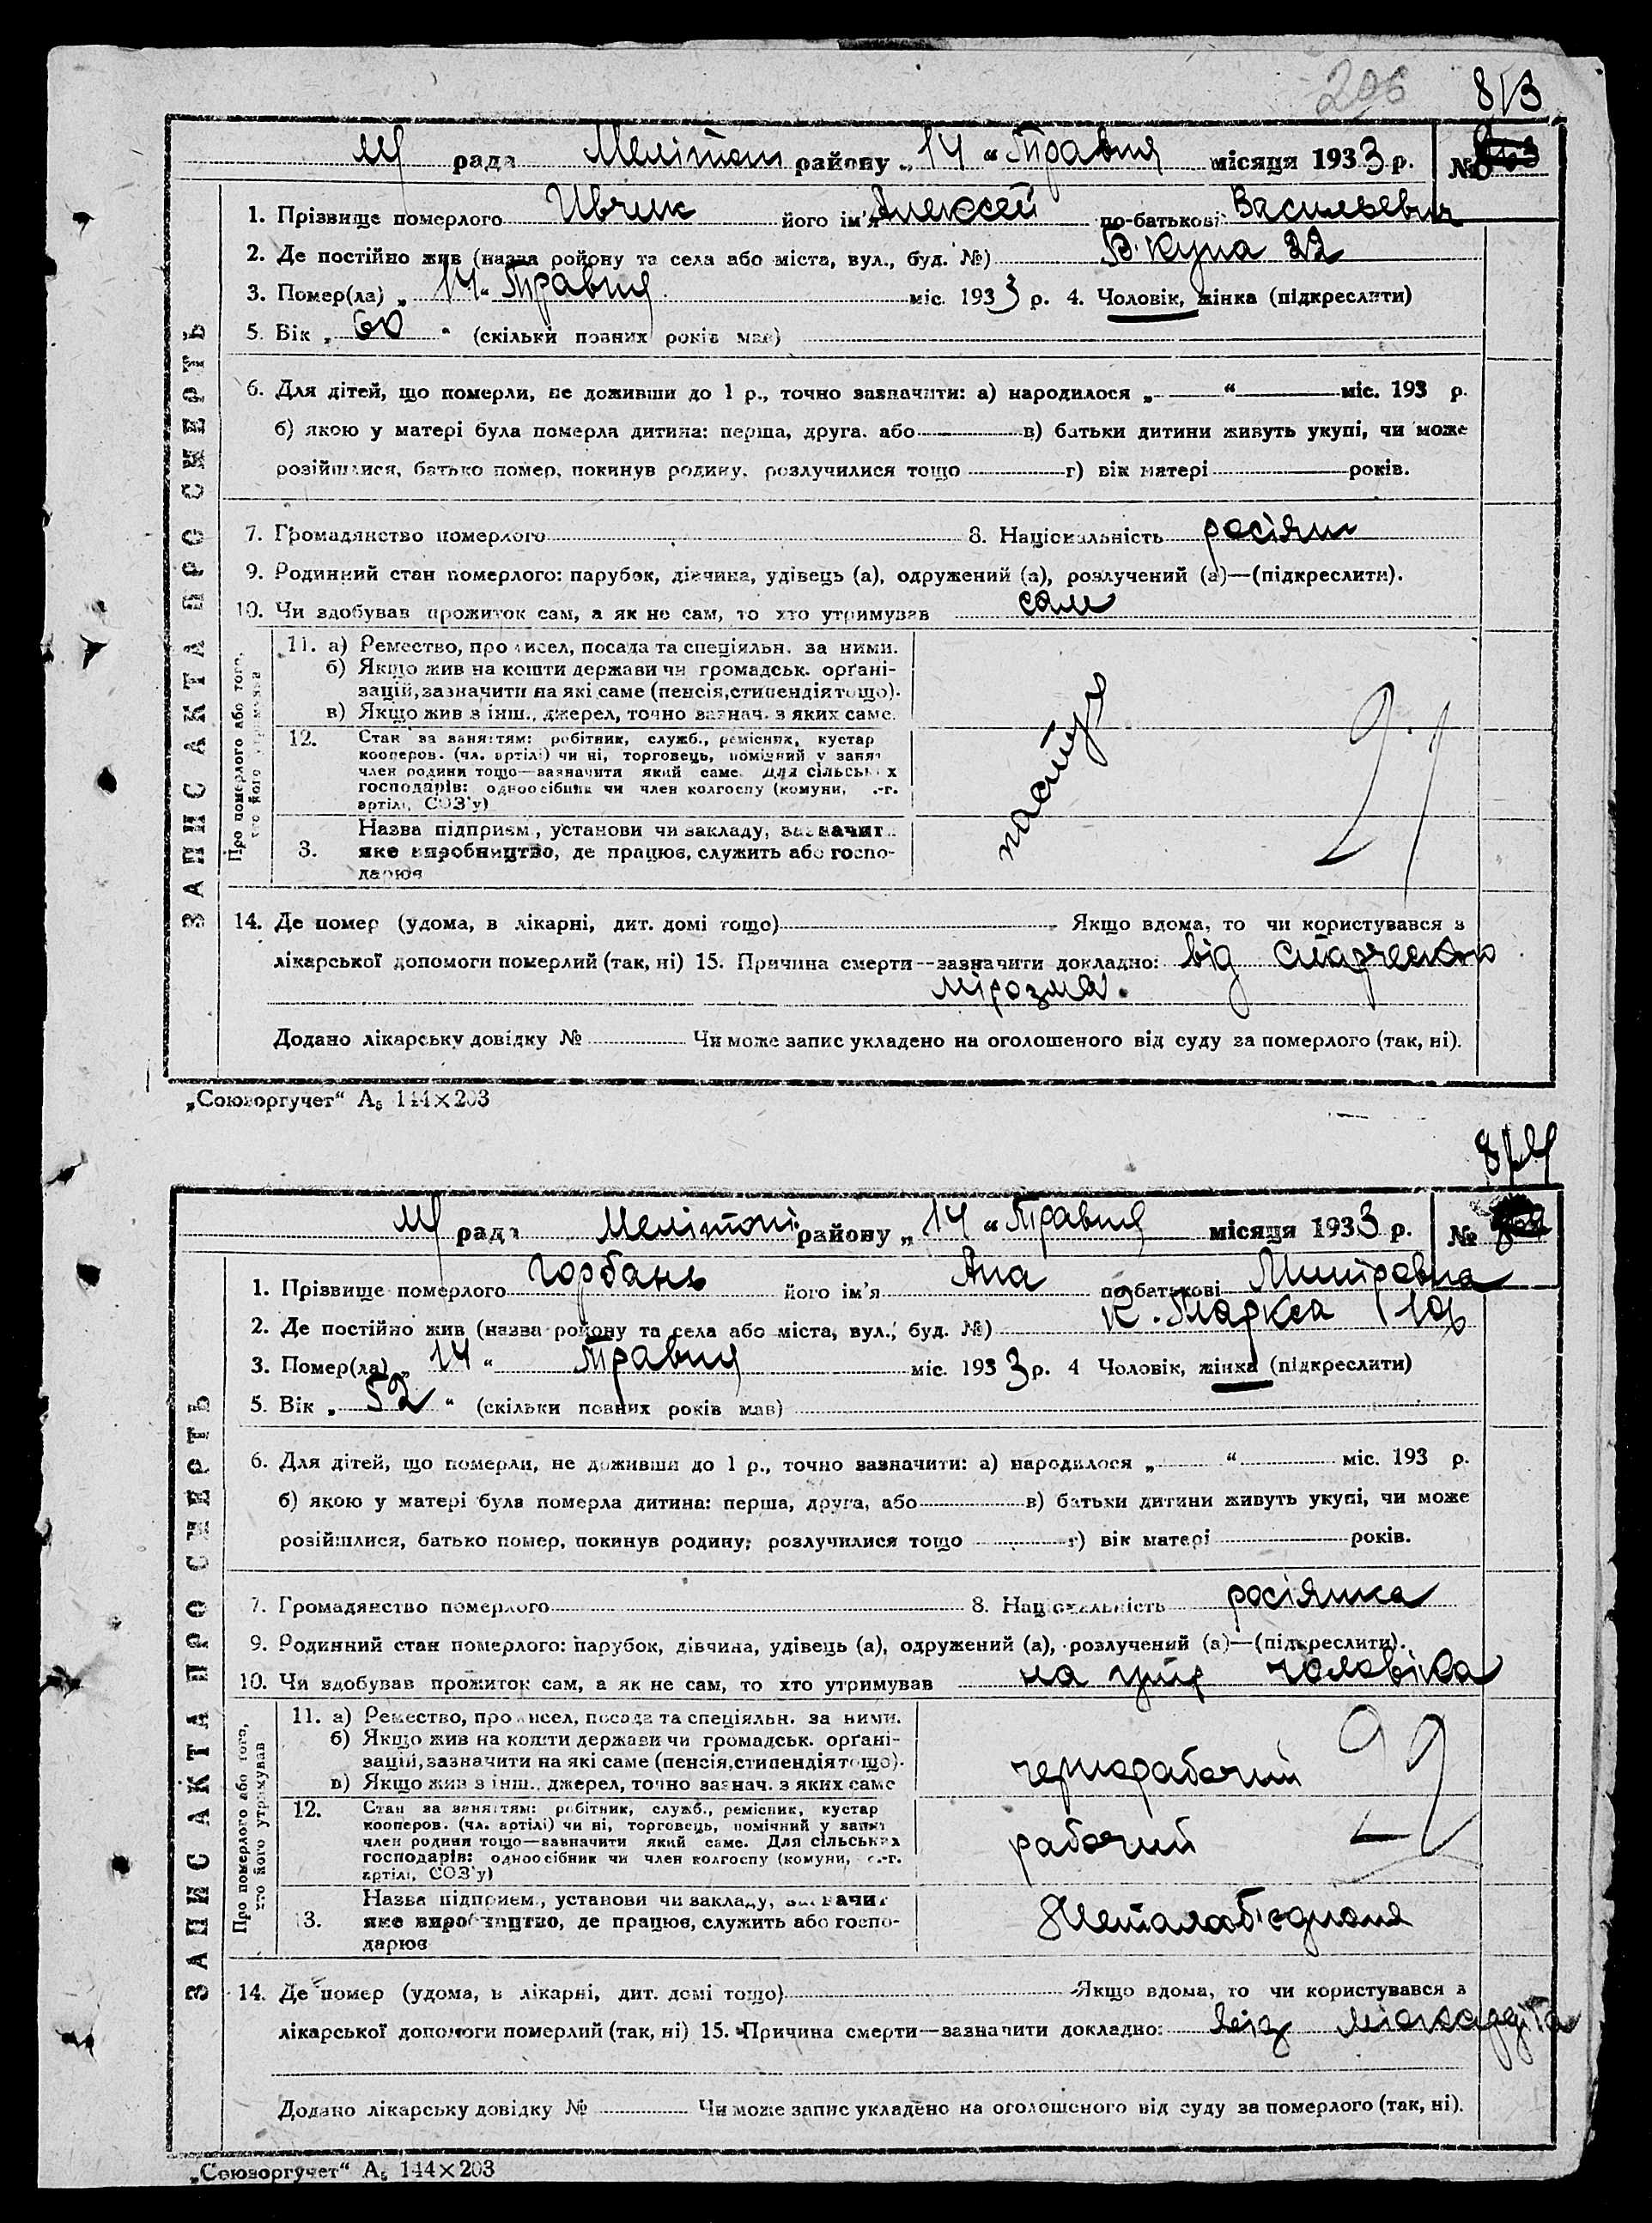 206
813
МР рада Мелітоп району „14“ Травня місяця 1933 р. №
ЗАПИС АКТА ПРО СМЕРТЬ
1. Прізвище померлого Ивчик його ім'я Алексей по-батькові Васильевич
2. Де постійно жив (назва ройону та села або міста, вул., буд. №) 22
3. Помер(ла) „14“ Травня міс. 1933 р. 4. Чоловік, жінка (підкреслити)
5. Вік „60“ (скільки повних років мав)
6. Для дітей, що померли, не доживши до 1 р., точно зазначити: а) народилося „ “ міс. 193 р.
б) якою у матері була померла дитина: перша, друга, або в) батьки дитини живуть укупі, чи може
розійшлися, батько помер, покинув родину, розлучилися тощо г) вік матері років.
7. Громадянство померлого 8. Національність росіян
9. Родинний стан померлого: парубок, дівчина, удівець (а), одружений (а), розлучений (а)—(підкреслити).
10. Чи здобував прожиток сам, а як не сам, то хто утримував сам
Про померлого або того, хто його утримував
11. а) Ремество, промисел, посада та спеціяльн. за ними.
б) Якщо жив на кошти держави чи громадськ. орґані-
зацій, зазначити на які саме (пенсія, стипендія тощо).
в) Якщо жив з інш., джерел, точно зазнач. з яких саме.
12. Стан за заняттям: робітник, служб., ремісник, кустар
кооперов. (чл. артілі) чи ні, торговець, помічний у занят
член родини тощо—зазначити який саме. Для сільських
господарів: одноосібник чи член колгоспу (комуни, с.-г.
артілі, СОЗ'у)
пастух
21
3. Назва підприєм., установи чи закладу, зазначит
яке виробництво, де працює, служить або госпо-
дарює
14. Де помер (удома, в лікарні, дит. домі тощо) Якщо вдома, то чи користувався з
лікарської допомоги померлий (так, ні) 15. Причина смерти—зазначити докладно: від старческого
мірозма.
Додано лікарську довідку № Чи може запис укладено на оголошеного від суду за померлого (так, ні).
„Союзоргучет“ А₅ 144×203
814
МР рада Мелітоп. району „14“ Травня місяця 1933 р. №
ЗАПИС АКТА ПРО СМЕРТЬ
1. Прізвище померлого Горбань його ім'я Ана по-батькові Митровна
2. Де постійно жив (назва ройону та села або міста, вул., буд. №) К. Маркса 106
3. Помер(ла) „14“ Травня міс. 1933 р. 4 Чоловік, жінка (підкреслити)
5. Вік „52“ (скільки повних років мав)
6. Для дітей, що померли, не доживши до 1 р., точно зазначити: а) народилося „ “ міс. 193 р.
б) якою у матері була померла дитина: перша, друга, або в) батьки дитини живуть укупі, чи може
розійшлися, батько помер, покинув родину; розлучилися тощо г) вік матері років.
7. Громадянство померлого 8. Національність росіянка
9. Родинний стан померлого: парубок, дівчина, удівець (а), одружений (а), розлучений (а)—(підкреслити).
10. Чи здобував прожиток сам, а як не сам, то хто утримував на утр чоловіка
Про померлого або того, хто його утримував
11. а) Ремество, промисел, посада та спеціяльн. за ними.
б) Якщо жив на кошти держави чи громадськ. орґані-
зацій, зазначити на які саме (пенсія, стипендія тощо).
в) Якщо жив з інш., джерел, точно зазнач. з яких саме
чернорабочий
22
12. Стан за заняттям: робітник, служб., ремісник, кустар
кооперов. (чл. артілі) чи ні, торговець, помічний у занят
член родини тощо—зазначити який саме. Для сільських
господарів: одноосібник чи член колгоспу (комуни, с.-г.
артілі, СОЗ'у)
рабочий
3. Назва підприєм., установи чи закладу, зазначит
яке виробництво, де працює, служить або госпо-
дарює
14. Де помер (удома, в лікарні, дит. домі тощо) Якщо вдома, то чи користувався з
лікарської допомоги померлий (так, ні) 15. Причина смерти—зазначити докладно: від міокардіта
Додано лікарську довідку № Чи може запис укладено на оголошеного від суду за померлого (так, ні).
„Союзоргучет“ А₅ 144×203